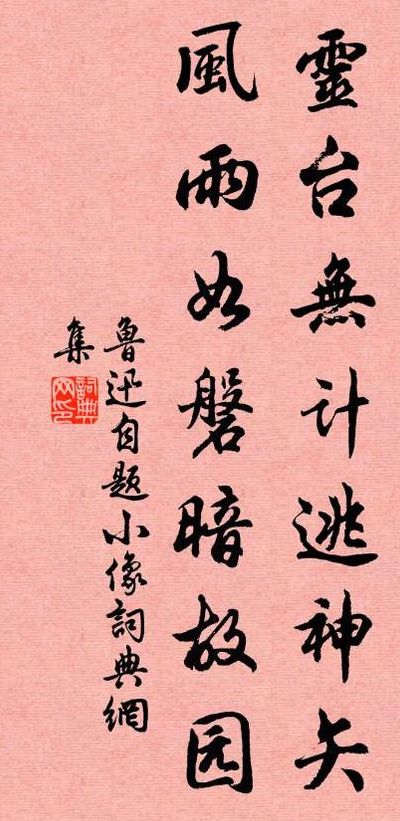 靈台無计逃神矢
風雨如磐暗故园
鲁迅自题小像詞典網
集
詞典
网印